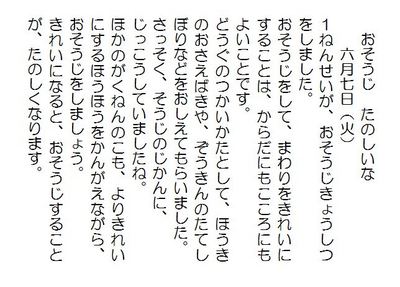 おそうじ　たのしいな
六月七日（火）
１ねんせいが、おそうじきょうしつ
をしました。
おそうじをして、まわりをきれいに
することは、からだにもこころにも
よいことです。
どうぐのつかいかたとして、ほうき
のおさえばきや、ぞうきんのたてし
ぼりなどをおしえてもらいました。
さっそく、そうじのじかんに、
じっこうしていましたね。
ほかのがくねんのこも、よりきれい
にするほうほうをかんがえながら、
おそうじをしましょう。
きれいになると、おそうじすること
が、たのしくなります。